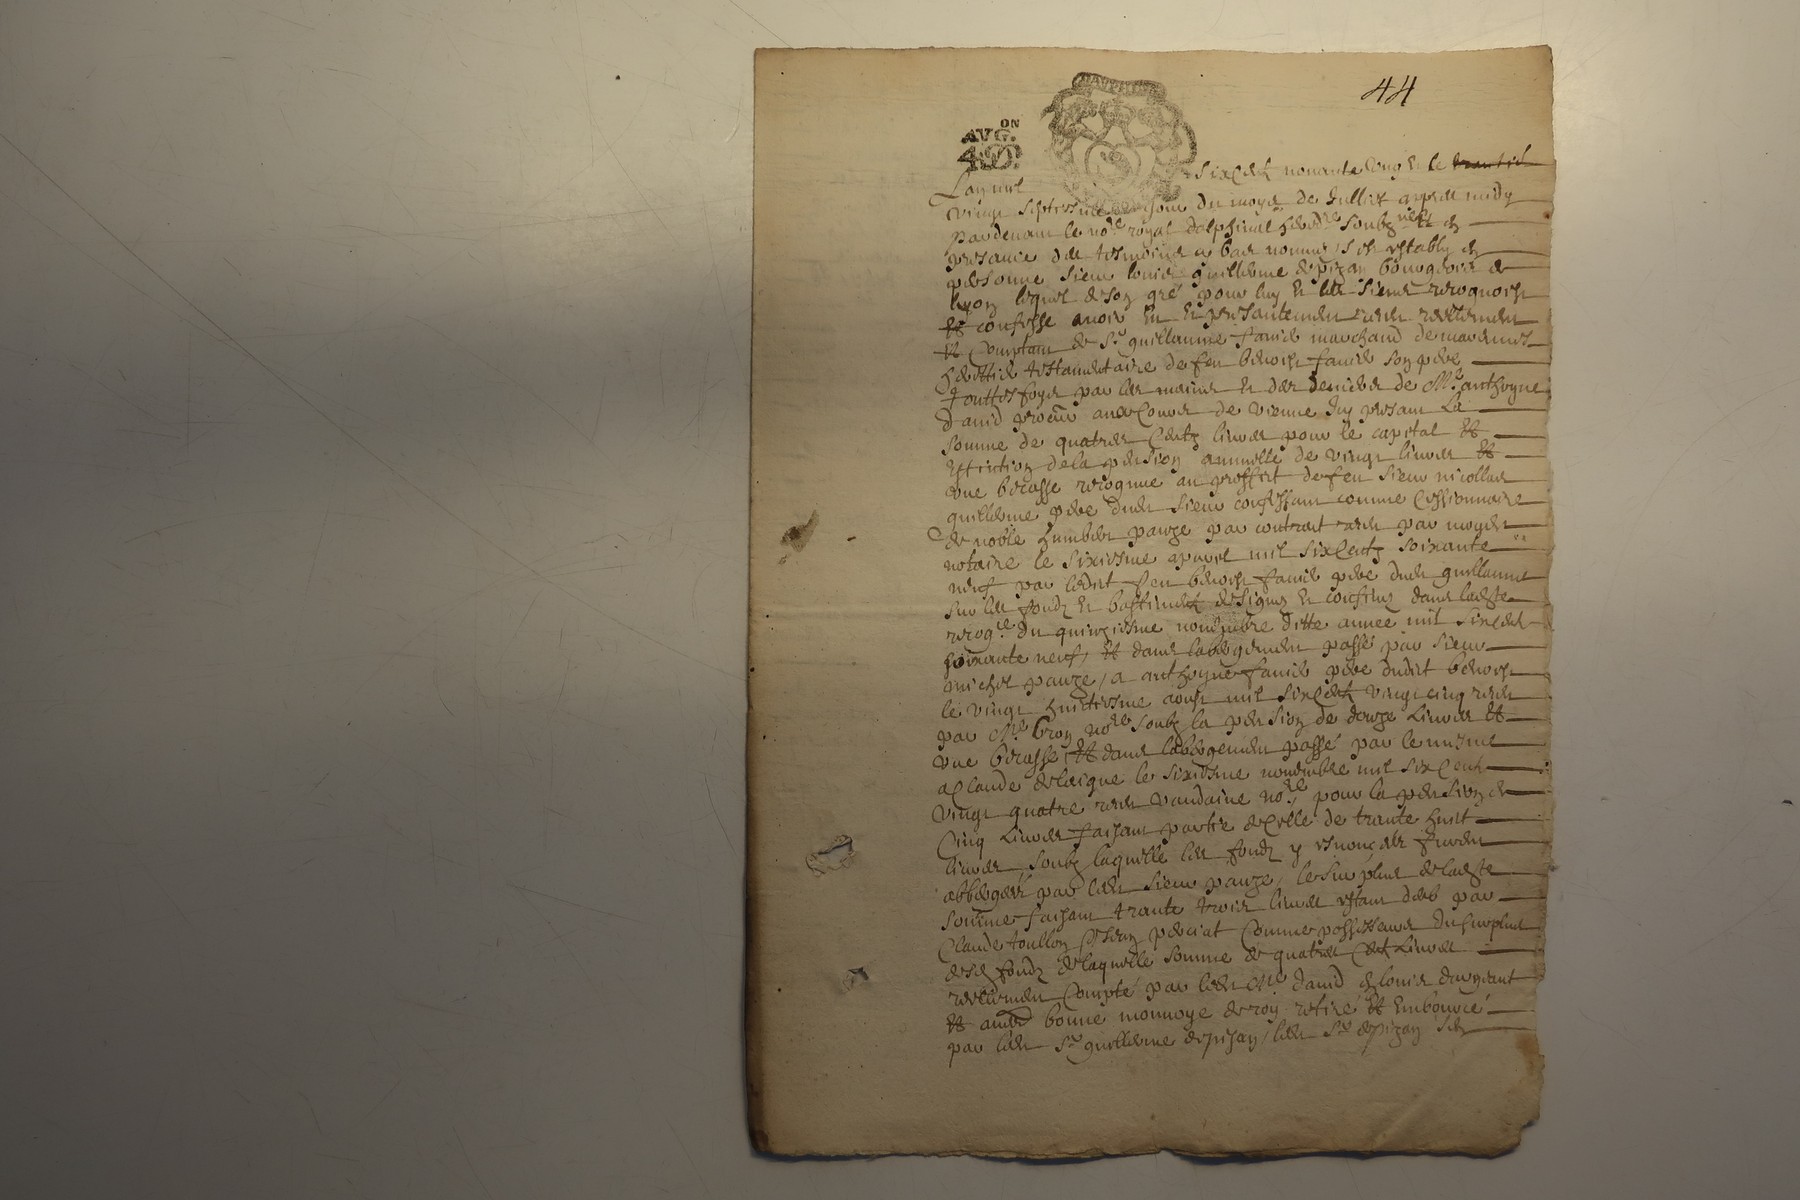 44
DAUPHINE
AVG.ON
4 D.
Lan mil sixCent nonante cinq & le
vingt septiesme jour du moys de Juillet appres midy
pardevant le no.re royal dalphinal hered.re soubz.né & en
presance des tesmoins a bas nommés s'est estably en
personne sieur Louis guillerme bourgeois de
lyon lequel de son gré pour luy & les siens recognoist
et confesse avoir eu & presantement reellement
et comptant de S.r guillaume favie marchand de
heritier testamentaire de feu benoist favie son pere
touttesfoys par les mains & des deniers de M.e anthoyne
david procur aux Cours de vienne icy presant La
somme de quatre Centz livres pour le capital et
extinction de la pension annuelle de vingt livres et
une becasse recognue au proffict de feu sieur nicollas
guillerme pere dudit sieur confessant comme Cessionnaire
de noble humbert pauze par contract receu par
notaire le sixiesme apvril mil sixCentz soixante
neuf par ledit feu benoist favie pere dudit guillaume
sur les fondz & bastimentz designez & confinez dans ladite
recog.ce du quinziesme novembre ditte annee mil sixCent
soixante neuf, et dans labergement passé par sieur
michel pauze, a anthoyne favie pere dudit benoist
le vingt huitiesme aoust mil sixCent vingt cinq receu
par M.e no.re soubz la pension de douze Livres et
une becasse, et dans labergement passé par le mesme
a Claude le sixiesme novembre mil sixCent
vingt quatre receu vaudaine no.re pour la pension de
Cinq Livres faisant partie de Celle de trante huit
livres soubz laquelle les fondz y enoncés furent
abbergés par ledit sieur pauze, le surplus de ladite
somme faisant trante trois livres estant deub par
Claude toullon & Jean comme possesseurs du surplus
desd fondz de laquelle somme de quatre Cent Livres
reellement Compté par ledit M.e david en louis dargeant
et autre bonne monnoye de roy retiré et Emboursé
par ledit S.r guillerme ledit S.r